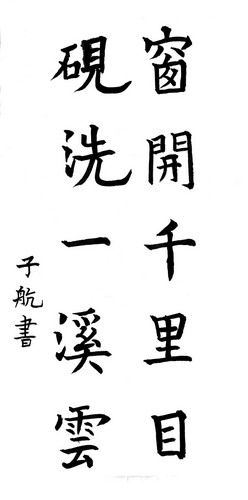 窗開千里目
硯洗一溪雲
子航書